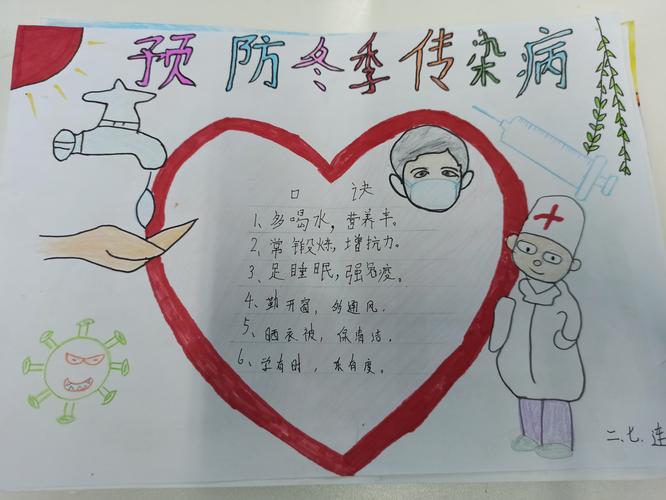 预防冬季传染病
口诀
1、多喝水，营养丰。
2、常锻炼，增抗力。
3、足睡眠，强免疫。
4、勤开窗，多通风.
5、晒衣被，保清洁.
6、学有时，末有度。
二、七、连